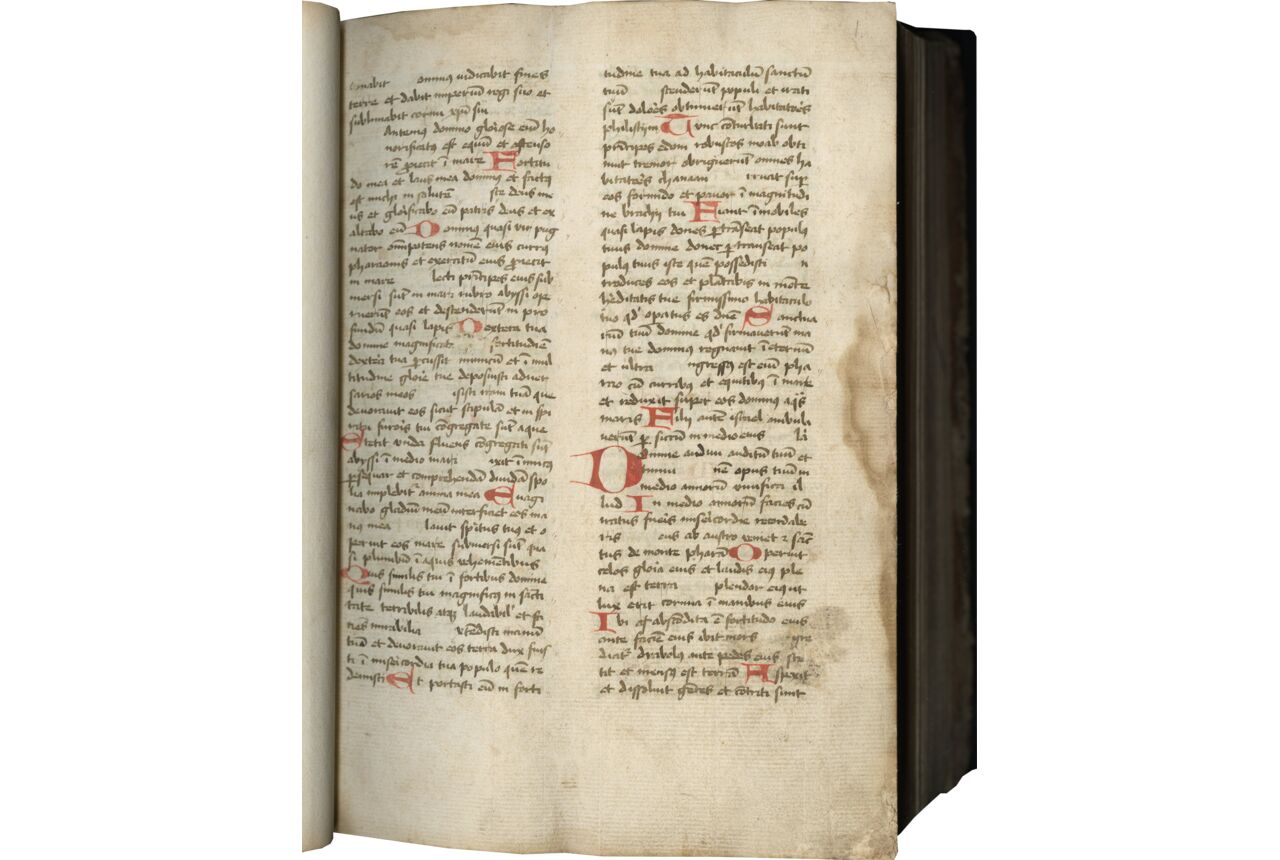 1.
tonabit dominus iudicabit fines
terre et dabit imperiū regi suo et
sublimabit cornu xpī sui
Antemus domino glōiose enī ho
norificatus est equū et ascenso
rē proiecit ī mare Fortitu
do mea et laus mea dominus et factꝰ
est michi in salutē iste deus me
us et glōificabo eū patris deus et ex
altabo eū Dominus quasi vir pug
nator omīpotens nomē eius currꝰ
pharaonis et exercitū eius proiecit
in mare lecti prīcipes eius sub
mersi sūt in mari rubro abyssi ope
ruerūt eos et descenderūt in pro
fundū quasi lapis Dextera tua
domine magnificata fortitudīe
dextera tua percussit inimicū et ī mul
titudine glōie tue deposuisti aduer
sarios meos isisti iram tuā que
deuorauit eos sicut stipulā et in spi
ritu furoris tui cōgregate sūt aque
Stetit vnda fluens cōgregati sūt
abyssi ī medio mari ixit inimicꝰ
persequar et comprehendā diuidā spo
lia implebitur anima mea Euagi
nabo gladiū meū interficiet eos ma
nus mea lauit spiritus tuus et o
peruit eos mare submersi sūt qua
si plumbū ī aquis vehementibus
Quis similis tui ī fortibus domine
quis similis tui magnificus in sācti
tate terribilis atq laudabil et fa
ciens mirabilia xtēdisti manū
tuā et deuorauit eos terra dux fuis
ti ī misericordia tua populo quē re
demisti Et portasti eū in forti
tudine tua ad habitaculū sanctū
tuū scenderūt populi et irati
sūt dolores obtinuerūt habitatores
philistijm Tunc cōturbati sunt
prīcipes edom robustos moab obti
nuit tremor obriguerūt omnes ha
bitatores chanaan rruat super
eos formido et pauor ī magnitudi
ne brachij tui Fiant īmobiles
quasi lapis donec pertrāseat populus
tuus domine donec pertranseat po
pulus tuus iste quē possedisti n
troduces eos et plātabis in mōte
hēditatis tue firmissimo habitaculo
tuo qd opatus es dñe Sanctua
riū tuū domine qd firmauerūt ma
nus tue dominus regnauit ī eternū
et ultra ngressus est enī pha
rao cū curribus et equitibus ī mare
et reduxit super eos dominus aqs
maris Filij autē israel ambula
uerūt per siccū in medio eius li
Domine audiui auditū tuū et
timui nē opus tuū in
medio annorū viuifica il
lud In medio annorū facies cū
iratus fueis misericordie recordabe
ris eus ab austro veniet et sāc
tus de monte pharan Operuit
celos gloia eius et laudis eiꝰ ple
na est terra plendor eiꝰ ut
lux erit cornua ī manibus eius
Ibi abscondita ē fortitudo eius
ante faciē eius ibit mors gre
diatur diabolus ante pedes eius ste
tit et mensus est terrā Aspexit
et dissoluit gētes et cōtriti sunt